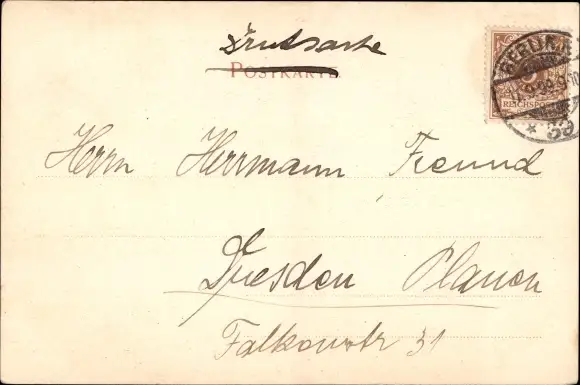 Drucksache
POSTKARTE
BERLIN
REICHSPOST
Herrn Herrmann Freund
Dresden Plauen
Falkenstr 31